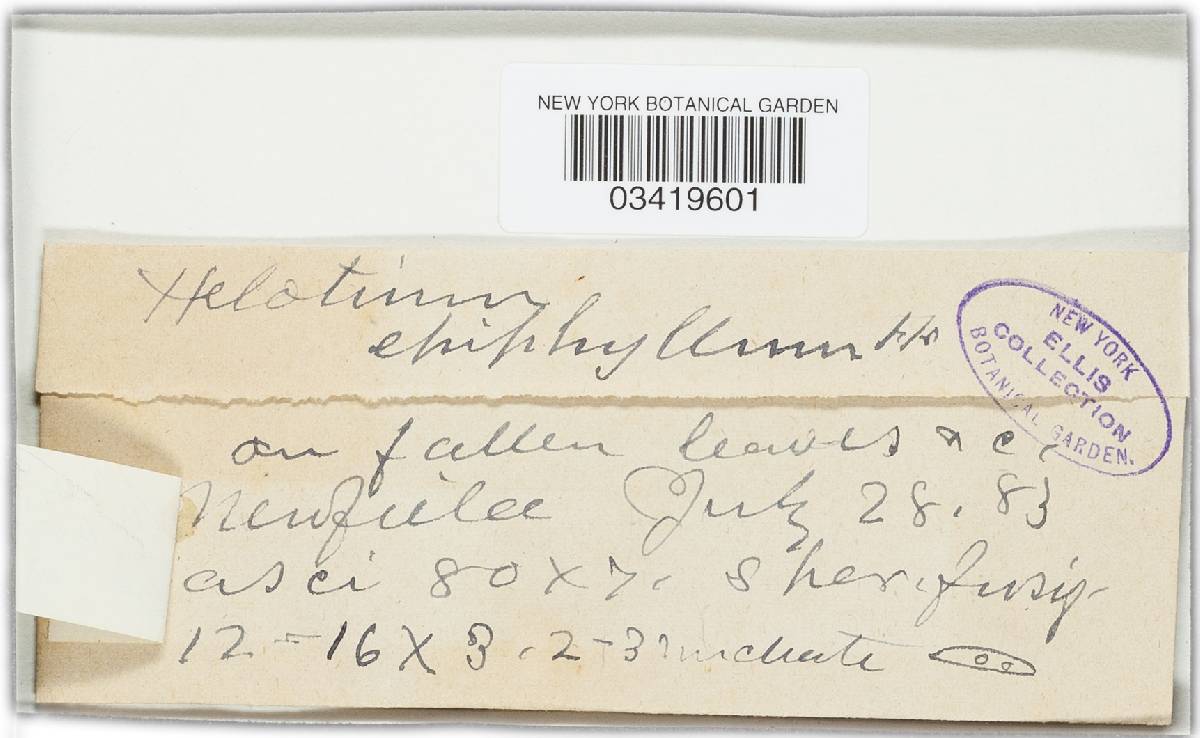 NEW YORK BOTANICAL GARDEN
03419601
Helotium
epiphyllum Fr
NEW YORK
ELLIS
COLLECTION
BOTANICAL GARDEN.
on fallen leaves &c.
Newfield July 28. 83
asci 80 x 7. sper. fusif
12-16 x 3. 2-3 nucleate